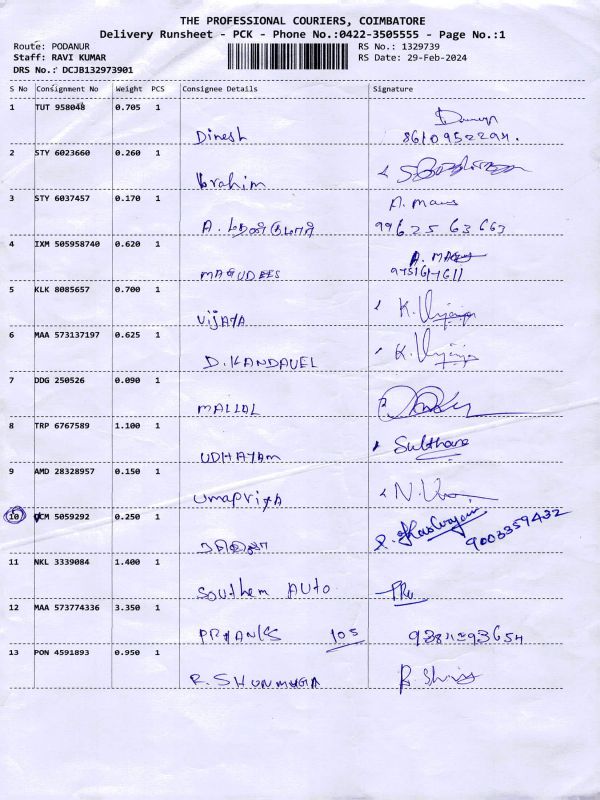 THE PROFESSIONAL COURIERS, COIMBATORE
Delivery Runsheet - PCK - Phone No.:0422-3505555 - Page No.:1
Route: PODANUR RS No.: 1329739
Staff: RAVI KUMAR RS Date: 29-Feb-2024
DRS No.: DCJB132973901
S No Consignment No Weight PCS Consignee Details Signature
1 TUT 958048 0.705 1
Dinesh
2 STY 6023660 0.260 1
Ibrahim
3 STY 6037457 0.170 1 A. Mano
A. 99625 63663
4 IXM 505958740 0.620 1
MAGUDEES
5 KLK 8085657 0.700 1
VIJAYA K. Vijaya
6 MAA 573137197 0.625 1
D. KANDAVEL K. Vijaya
7 DDG 250526 0.090 1
MALLAL
8 TRP 6767589 1.100 1
UDHAYAM
9 AMD 28328957 0.150 1
Umapriya
10 5059292 0.250 1
9003359432
11 NKL 3339084 1.400 1
Southern AUTO
12 MAA 573774336 3.350 1
105
13 PON 4591893 0.950 1
R. SHUNMUGA